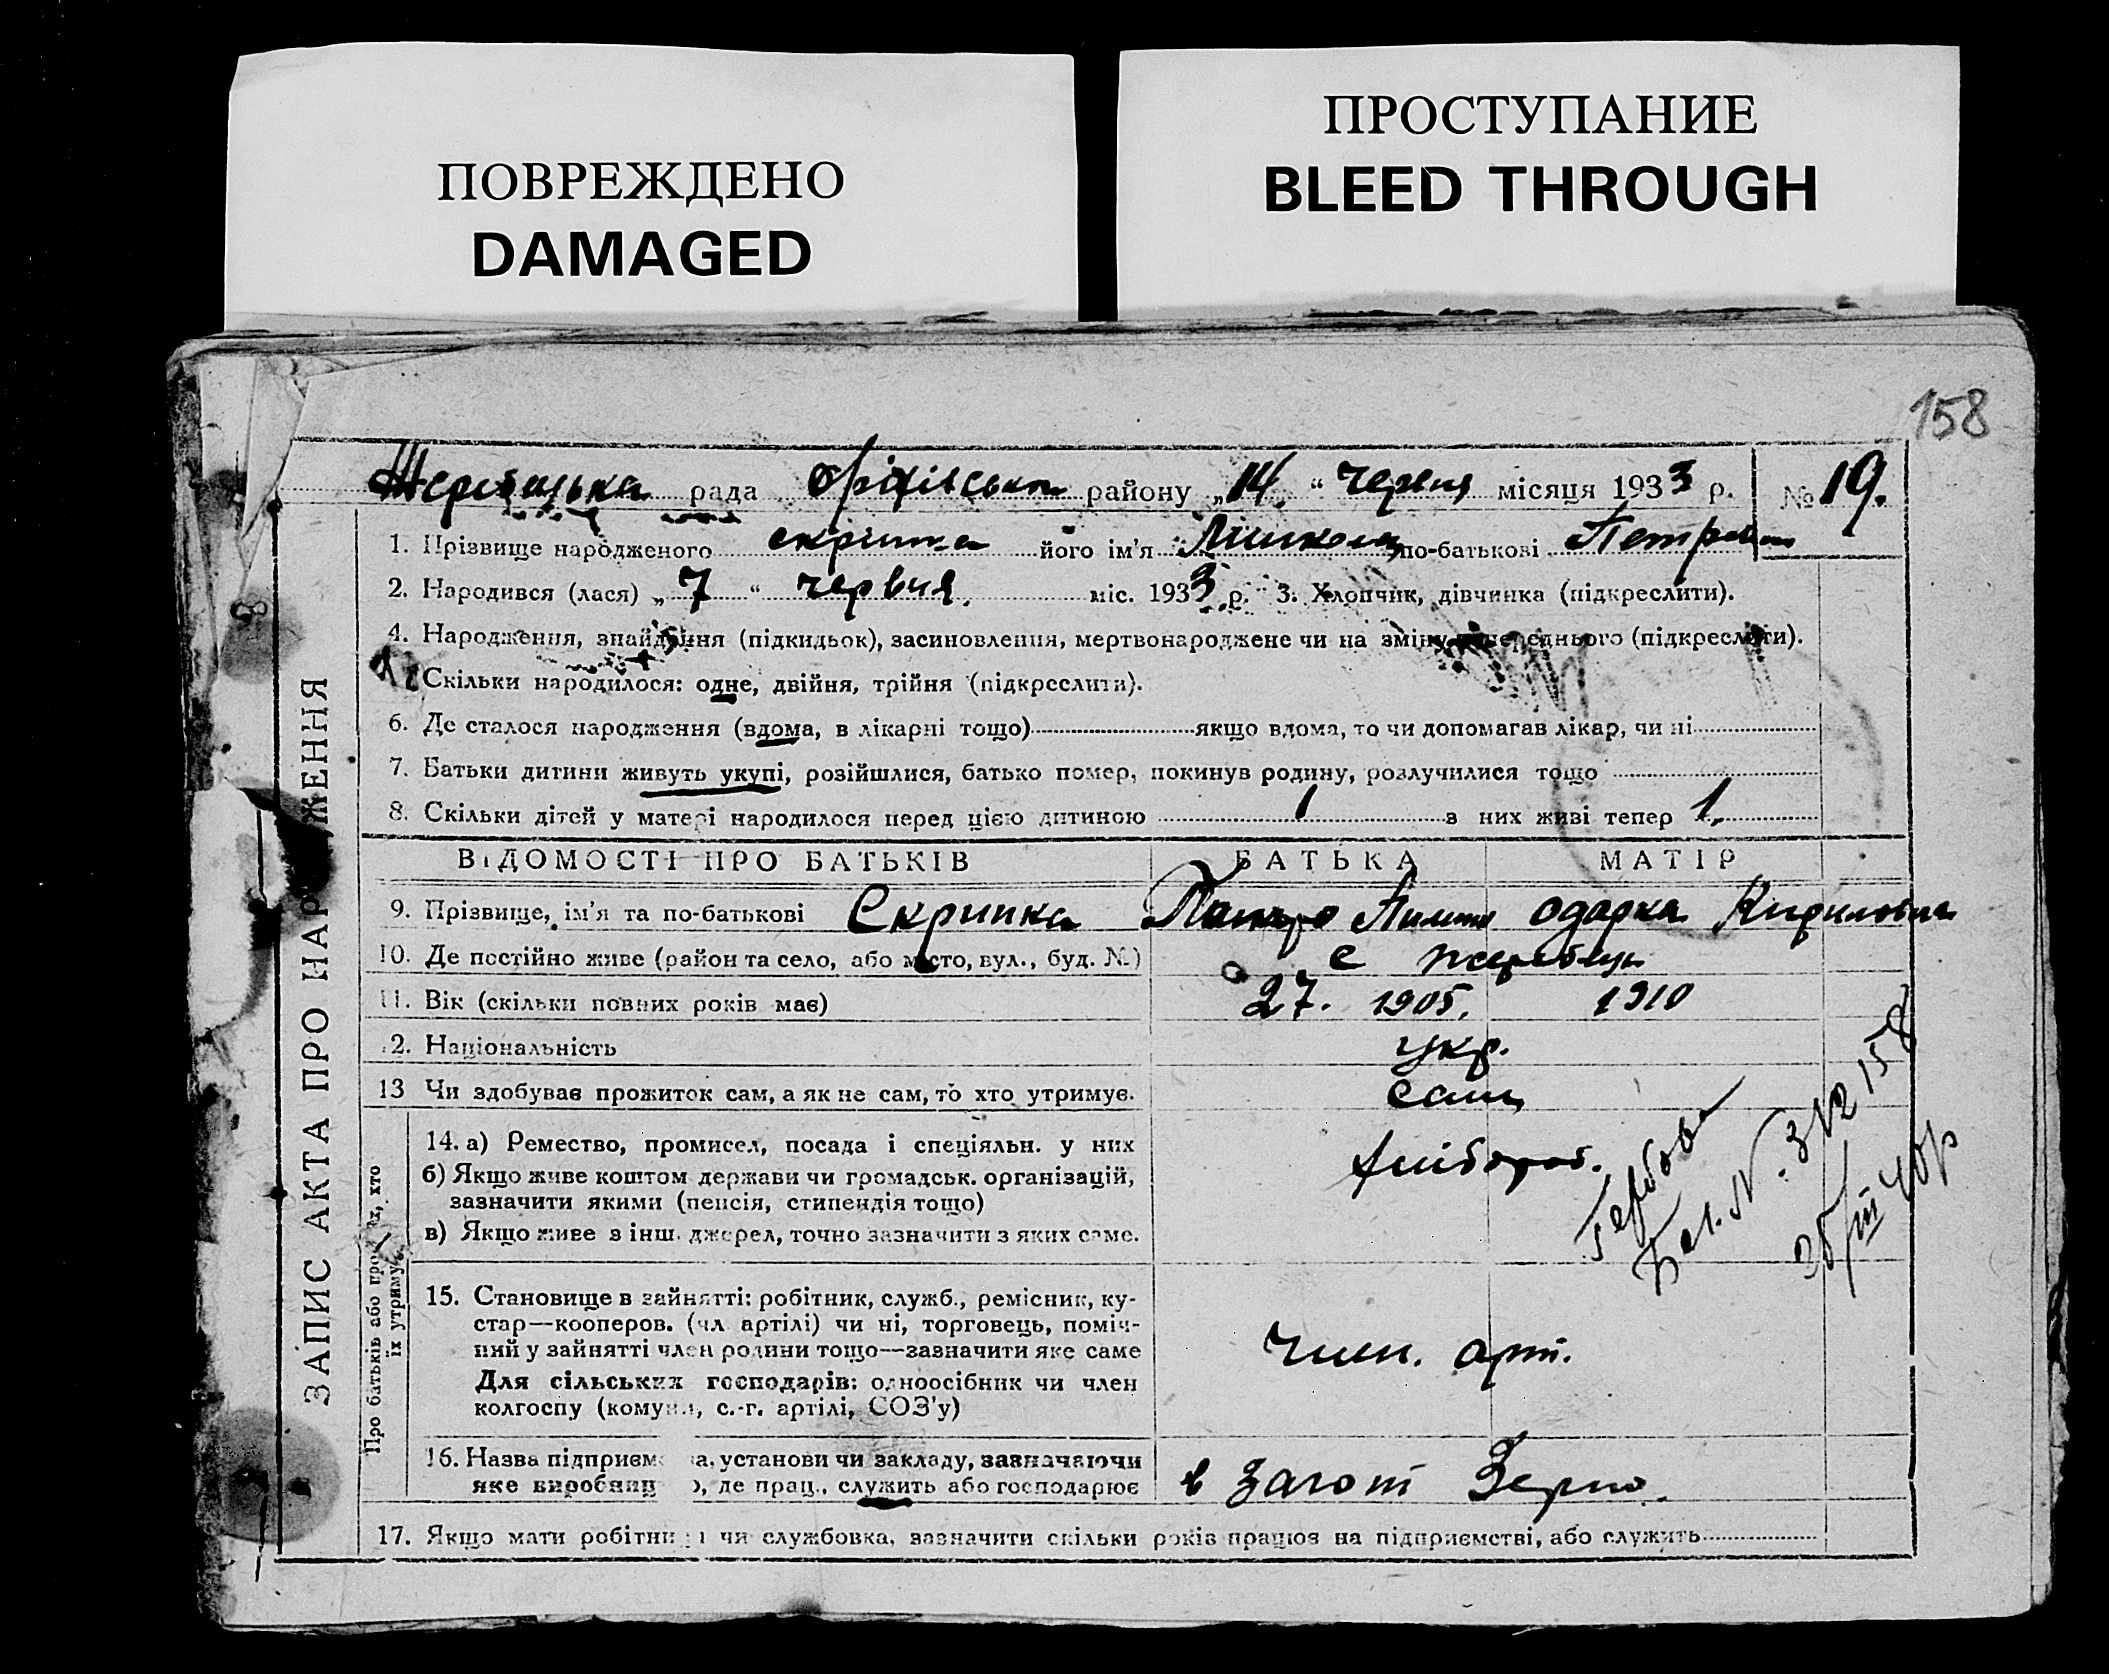 ПОВРЕЖДЕНО
DAMAGED
ПРОСТУПАНИЕ
BLEED THROUGH
158
Жеребецька рада Оріхівськ району „14“ червня місяця 1933 р. № 19.
1. Прізвище народженого скрипка його ім'я Миколa по-батькові Петров
2. Народився (лася) „7“ червня міс. 1933 р. 3. Хлопчик, дівчинка (підкреслити).
4. Народження, знайдення (підкидьок), засиновлення, мертвонароджене чи на зміну попереднього (підкреслити).
Скільки народилося: одне, двійня, трійня (підкреслити).
6. Де сталося народження (вдома, в лікарні тощо) якщо вдома, то чи допомагав лікар, чи ні
7. Батьки дитини живуть укупі, розійшлися, батько помер, покинув родину, розлучилися тощо
8. Скільки дітей у матері народилося перед цією дитиною 1 з них живі тепер 1.
ВІДОМОСТІ ПРО БАТЬКІВ БАТЬКА МАТІР
9. Прізвище, ім'я та по-батькові Скрипка Петро Одарка Кириловна
10. Де постійно живе (район та село, або місто, вул., буд. №) с Жеребець
11. Вік (скільки повних років має) 27. 1905. 1910
12. Національність укр.
13 Чи здобуває прожиток сам, а як не сам, то хто утримує. сам
14. а) Ремество, промисел, посада і спеціяльн. у них хлібороб.
б) Якщо живе коштом держави чи громадськ. організацій,
зазначити якими (пенсія, стипендія тощо)
в) Якщо живе з інш. джерел, точно зазначити з яких саме.
Гербове
15. Становище в зайнятті: робітник, служб., ремісник, ку-
стар—кооперов. (чл. артілі) чи ні, торговець, поміч-
ний у зайнятті член родини тощо—зазначити яке саме
Для сільських господарів: одноосібник чи член
колгоспу (комуни, с.-г. артілі, СОЗ'у)
член. арт.
16. Назва підприємства, установи чи закладу, зазначаючи
яке виробництво, де прац., служить або господарює
в Загот Зерно.
17. Якщо мати робітниця чи службовка, зазначити скільки років працює на підприємстві, або служить
ЗАПИС АКТА ПРО НАРОДЖЕННЯ
Про батьків або про тих, хто
їх утримує